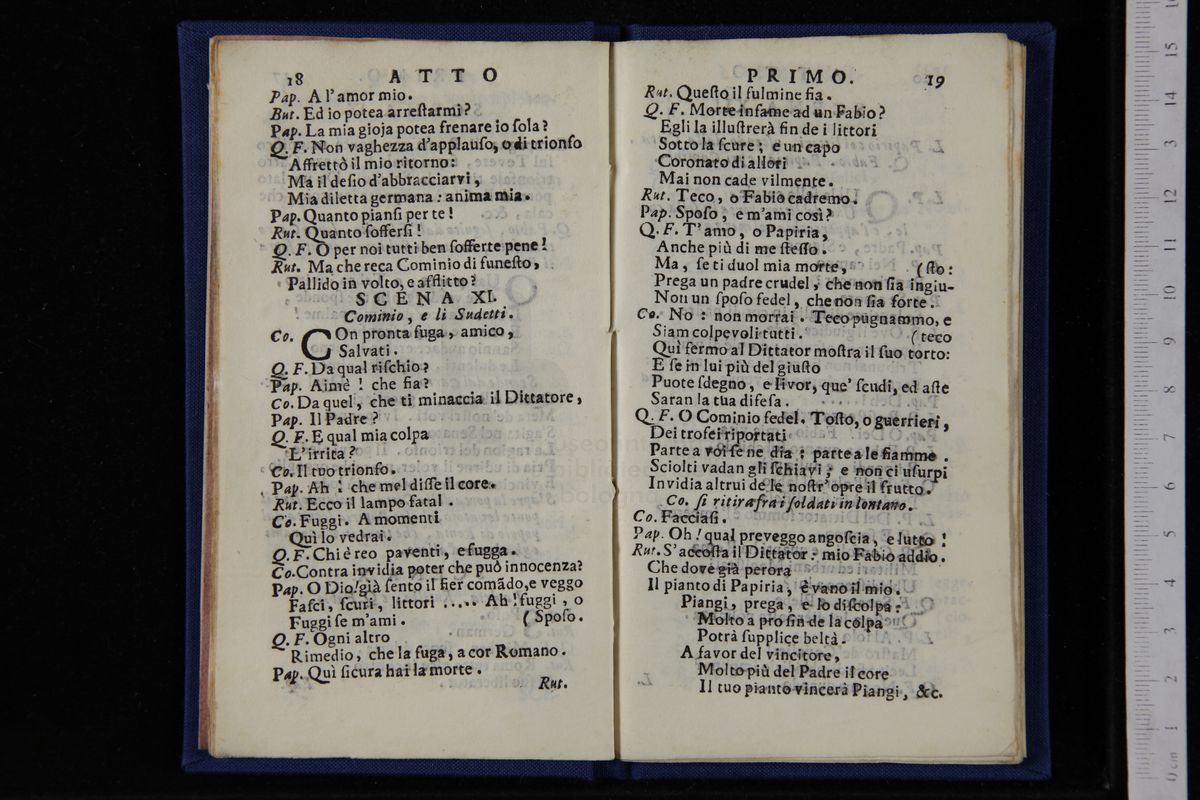 18 ATTO
Pap. A l'amor mio.
But. Ed io potea arreſtarmi?
Pap. La mia gioja potea frenare io ſola?
Q. F. Non vaghezza d'applauſo, o di trionfo
Affrettò il mio ritorno:
Ma il deſio d'abbracciarvi,
Mia diletta germana: anima mia.
Pap. Quanto pianſi per te!
Rut. Quanto ſofferſi!
Q. F. O per noi tutti ben ſofferte pene!
Rut. Ma che reca Cominio di funeſto,
Pallido in volto, e afflitto?
SCENA XI.
Cominio, e li Sudetti.
Co. COn pronta fuga, amico,
Salvati.
Q. F. Da qual riſchio?
Pap. Aimè! che fia?
Co. Da quel, che ti minaccia il Dittatore,
Pap. Il Padre?
Q. F. E qual mia colpa
L'irrita?
Co. Il tuo trionfo.
Pap. Ah! che mel diſſe il core.
Rut. Ecco il lampo fatal.
Co. Fuggi. A momenti
Quì lo vedrai.
Q. F. Chi è reo paventi, e fugga.
Co. Contra invidia poter che può innocenza?
Pap. O Dio! già ſento il fier comãdo, e veggo
Faſci, ſcuri, littori ..... Ah! fuggi, o
Fuggi ſe m'ami. (Spoſo.
Q. F. Ogni altro
Rimedio, che la fuga, a cor Romano.
Pap. Quì ſicura hai la morte.
Rut.
PRIMO. 19
Rut. Queſto il fulmine fia.
Q. F. Morte infame ad un Fabio?
Egli la illuſtrerà fin de i littori
Sotto la ſcure; e un capo
Coronato di allori
Mai non cade vilmente.
Rut. Teco, o Fabio cadremo.
Pap. Spoſo, e m'ami così?
Q. F. T'amo, o Papiria,
Anche più di me ſteſſo.
Ma, ſe ti duol mia morte, (ſto:
Prega un padre crudel, che non ſia ingiu-
Non un ſpoſo fedel, che non ſia forte.
Co. No: non morrai. Teco pugnammo, e
Siam colpevoli tutti. (teco
Quì fermo al Dittator moſtra il ſuo torto:
E ſe in lui più del giuſto
Puote ſdegno, e livor, que' ſcudi, ed aſte
Saran la tua difeſa.
Q. F. O Cominio fedel. Toſto, o guerrieri,
Dei trofei riportati
Parte a voi ſe ne dia: parte a le fiamme.
Sciolti vadan gli ſchiavi; e non ci uſurpi
Invidia altrui de le noſtr'opre il frutto.
Co. ſi ritira fra i ſoldati in lontano.
Co. Facciaſi.
Pap. Oh! qual preveggo angoſcia, e lutto!
Rut. S'accoſta il Dittator: mio Fabio addio.
Che dove già perora
Il pianto di Papiria, è vano il mio.
Piangi, prega, e lo diſcolpa:
Molto a pro fin de la colpa
Potrà ſupplice beltà.
A favor del vincitore,
Molto più del Padre il core
Il tuo pianto vincerà Piangi, &c.